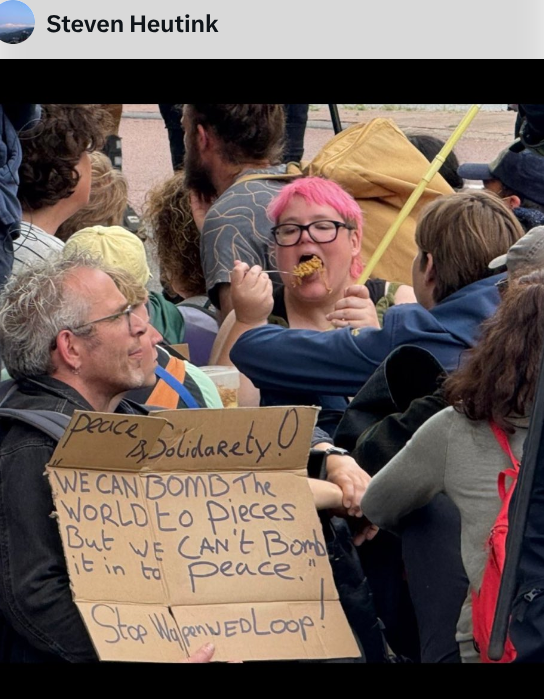 Steven Heutink
peace
& Solidarety!
WE CAN BOMB The
WORLD to pieces
But WE CAN'T Bomb
it in to peace."
Stop WapenWEDLoop!